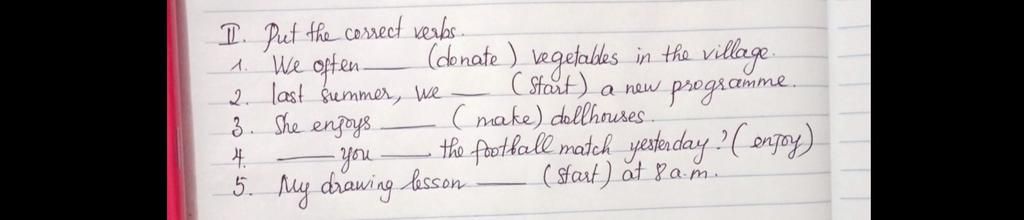 II. Put the correct verbs.
1. We often ____ (donate) vegetables in the village.
2. last summer, we ___ (start) a new programme.
3. She enjoys ____ (make) dollhouses.
4. ____ you ____ the football match yesterday? (enjoy)
5. My drawing lesson ____ (start) at 8 a.m.